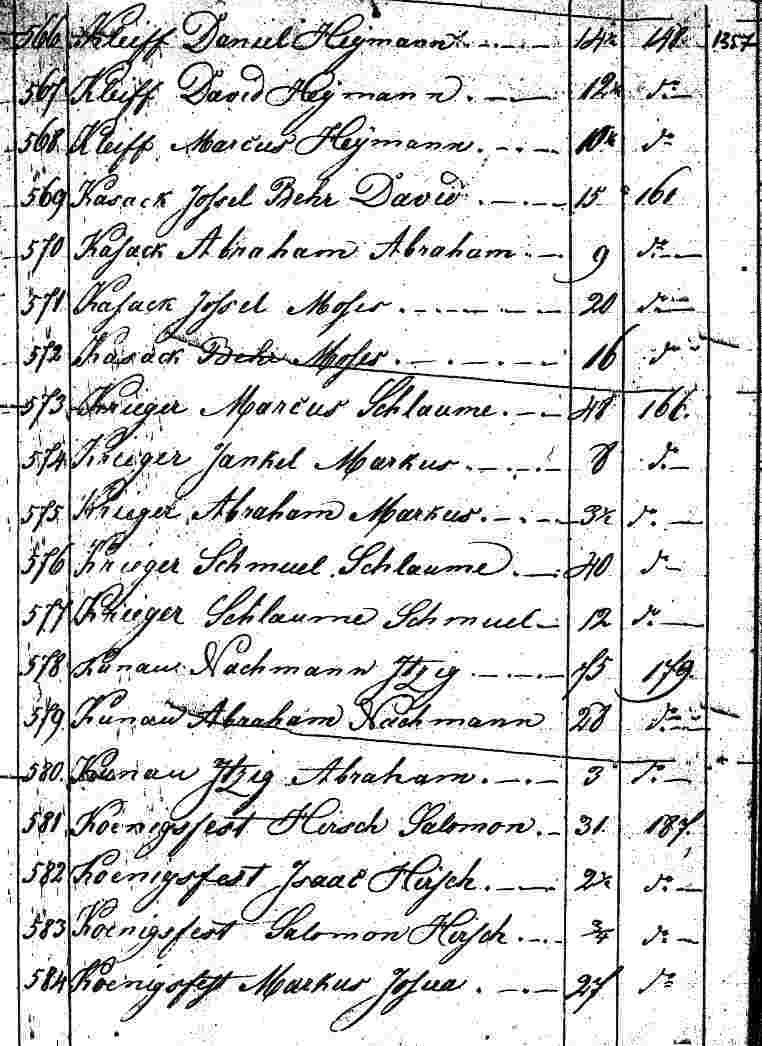 566 Kleiff Daniel Heymann 14½ 148 1357
567 Kleiff David Heymann 12½ do
568 Kleiff Marcus Heymann 10½ do
569 Kasack Jossel Behr David 15 160
570 Kasack Abraham Abraham 9 do
571 Kasack Jossel Moses 20 do
572 Kasack Behr Moses 16 do
573 Krieger Marcus Schlaume 48 166
574 Krieger Jankel Markus 8 do
575 Krieger Abraham Markus 3½ do
576 Krieger Schmuel Schlaume 40 do
577 Krieger Schlaume Schmuel 12 do
578 Kunau Nachmann Itzig 75 179
579 Kunau Abraham Nachmann 28 do
580 Kunau Itzig Abraham 3 do
581 Koenigsfest Hirsch Salomon 31 187
582 Koenigsfest Isaac Hirsch 2½ do
583 Koenigsfest Salomon Hirsch ¾ do
584 Koenigsfest Markus Josua 27 do